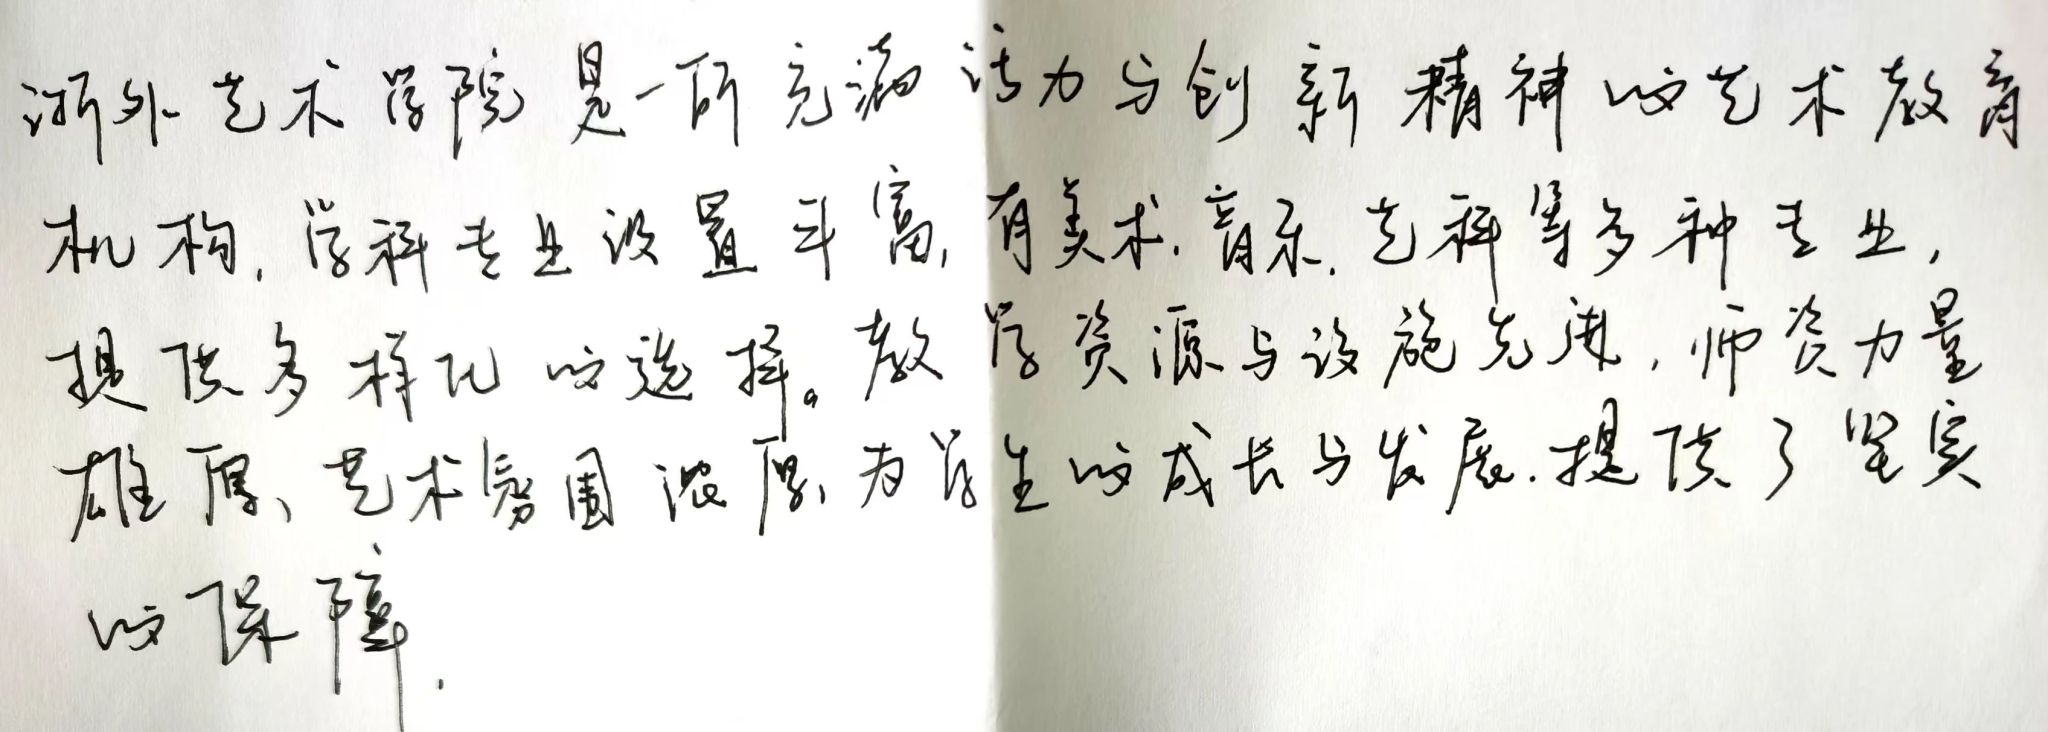 浙外艺术学院是一所充满活力与创新精神的艺术教育
机构,学科专业设置丰富,有美术.音乐.艺科等多种专业,
提供多样化的选择。教学资源与设施先进.师资力量
雄厚、艺术氛围浓厚,为学生的成长与发展.提供了坚实
的保障.